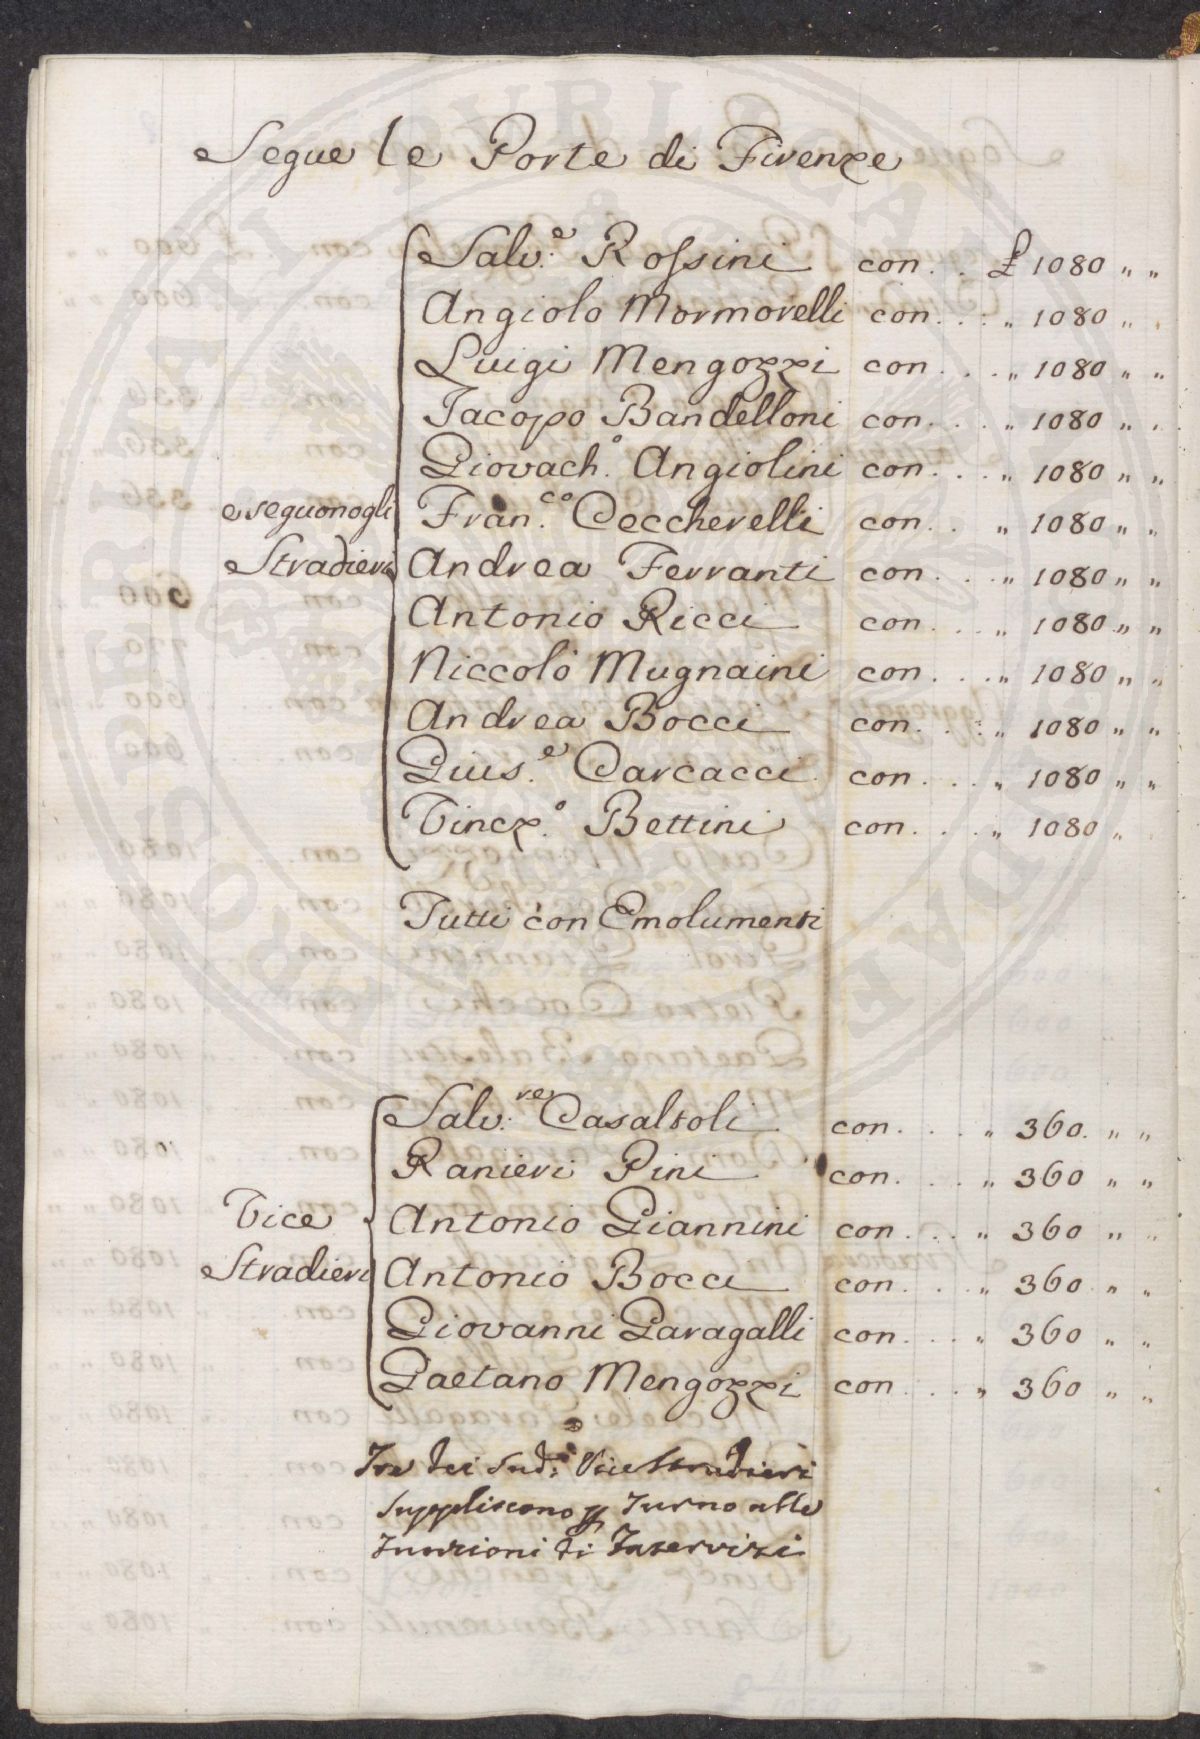 Segue le Porte di Firenze
Salv.e Rossini con . . £ 1080 " "
Angiolo Mormorelli con . . . " 1080 "
Luigi Mengozzi con . . . " 1080 " "
Jacopo Bandelloni con . . . " 1080 " "
Giovach.o Angiolini con . . . " 1080 " "
seguonogli Fran.co Ceccherelli con . . " 1080 " "
Stradieri Andrea Ferranti con . . . " 1080 " "
Antonio Ricci con . . . " 1080 " "
Niccolò Mugnaini con . . . " 1080 " "
Andrea Bocci con . . . " 1080 " "
Gius.e Carcacci con . . . " 1080 " "
Vincz.o Bettini con . . . " 1080 "
Tutti con Emolumenti
Salv.re Casaltoli con . . . " 360 " "
Ranieri Pini con . . . " 360 " "
Vice Antonio Giannini con . . . " 360 " "
Stradieri Antonio Bocci con . . . " 360 " "
Giovanni Garagalli con . . . " 360 " "
Gaetano Mengozzi con . . . " 360 " "
Tre dei Sud.i Vice Stradieri
Suppliscono p Turno alle
Funzioni di Inservizi